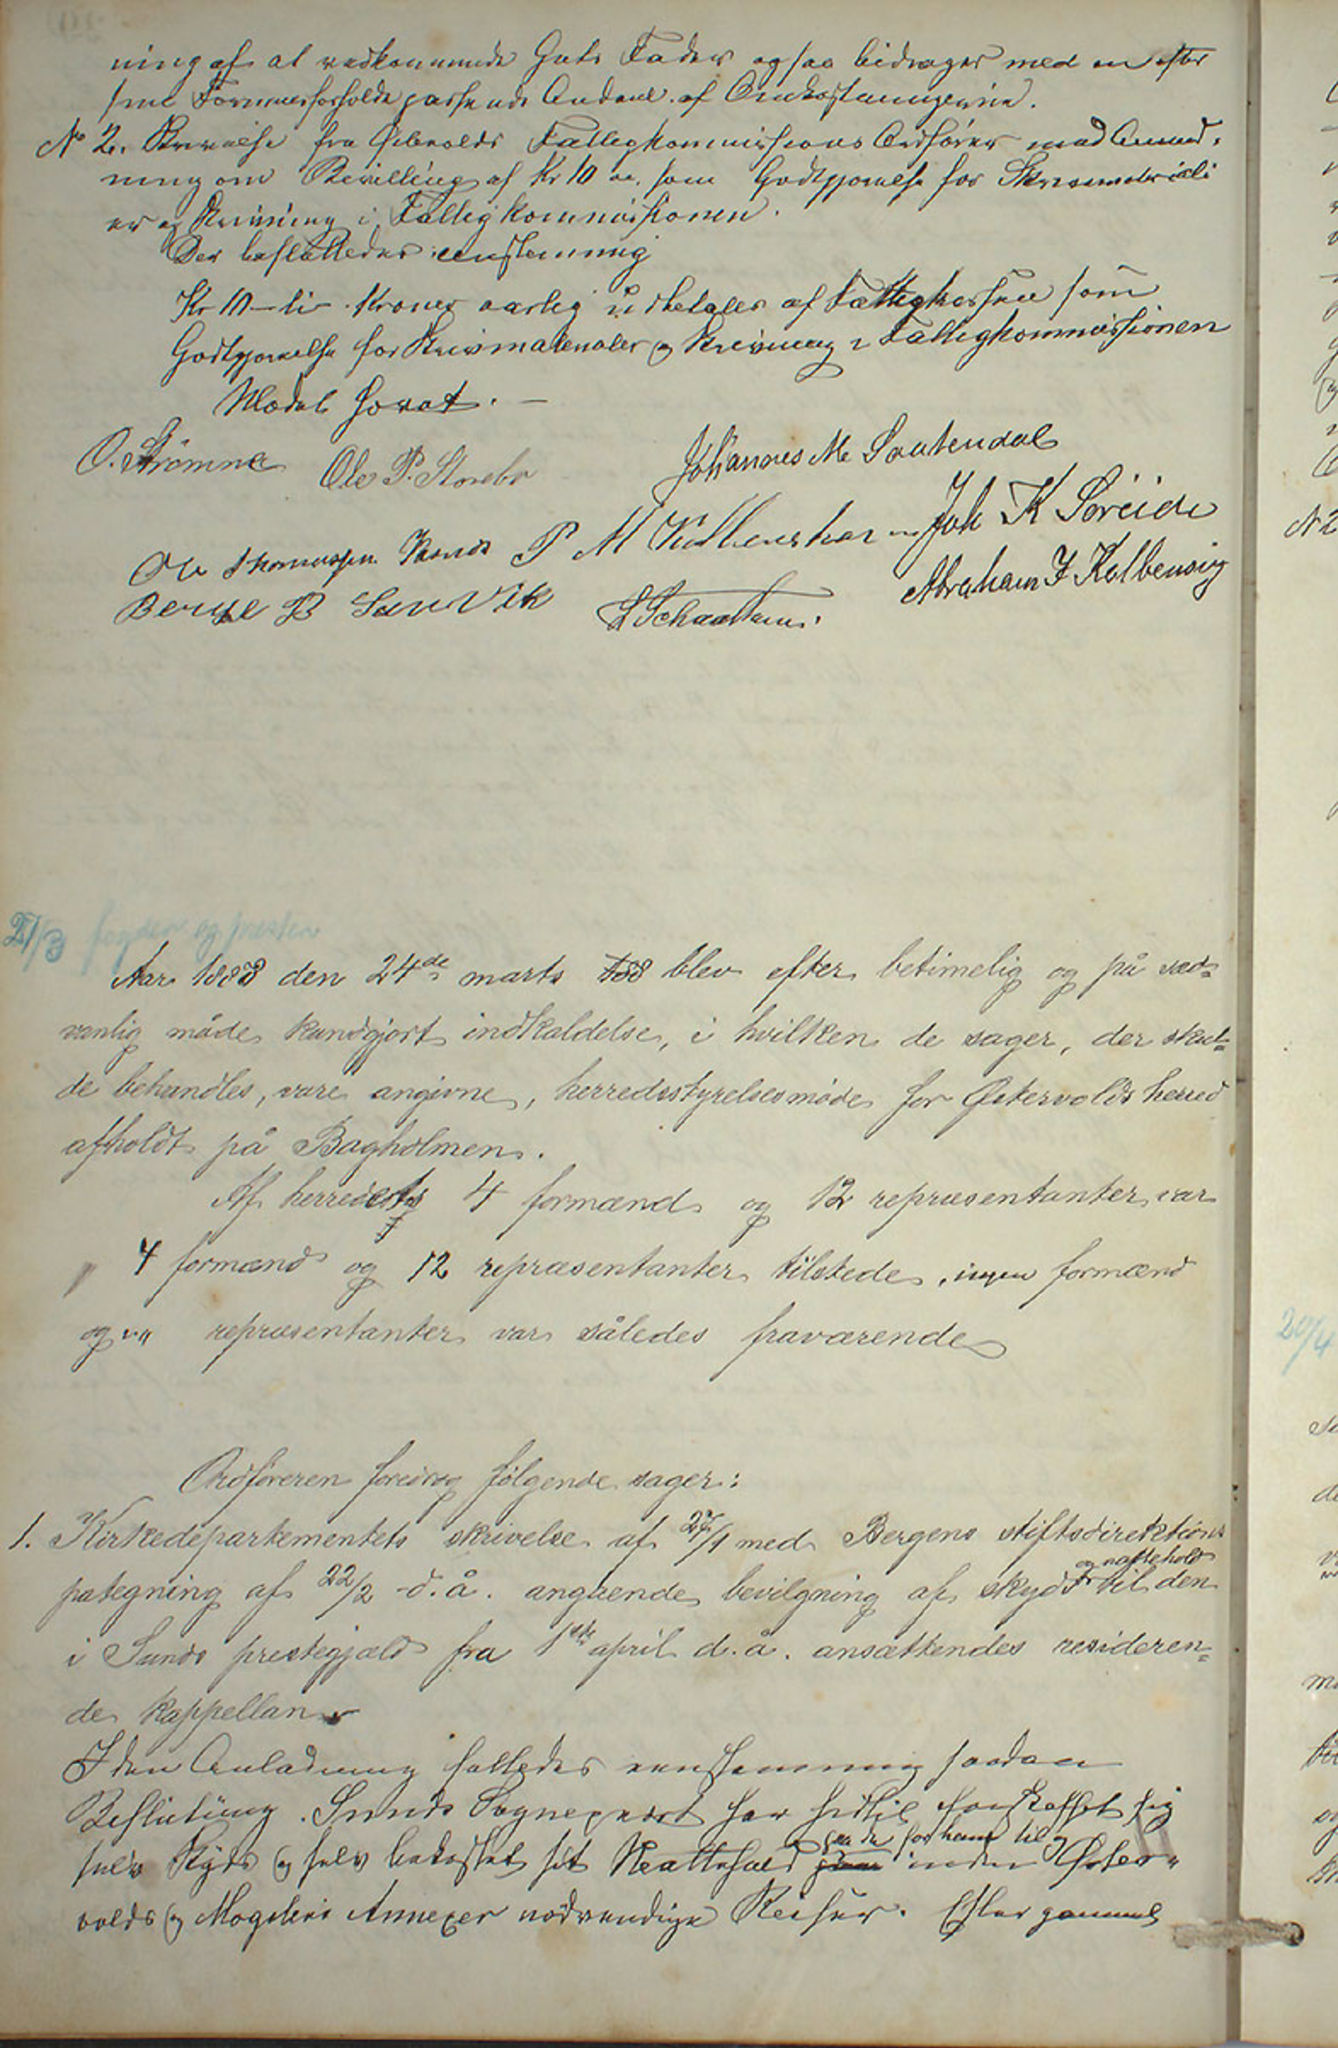 ning af at vedkommende Guts Fader ogsaa bidrager med en efter
sine Formuesforholde passende Andeel af Omkostningerne.
No 2. Skrivelse fra Østervolds Fattigkommissions Ordfører med Anmod-
ning om Bevilling af Kr 10 som Godtgjørelse for Skrivmateriali
er og Skrivning i Fattigkommissionen.
Der besluttedes eenstemmig
Kr 10 – ti – Kroner aarlig udbetales af Fattigkassen som
Godtgjørelse for Skrivmaterialer og Skrivning i Fattigkommissionen
Mødet hævet. –
O. Strømme Ole P. Storebø Johannes M. Sautendal
Ole Thomassen P M Kolbenshavn Joh K Søreide
Berge B Sanvik Abraham J Kolbensvig
21/3 fogden og presten
Aar 1883 den 24de marts 188 blev efter betimelig og på sæd-
vanlig måde kundgjort indkaldelse, i hvilken de sager, der skul-
de behandles, vare angivne, herredsstyrelsesmøde for Østervolds herred
afholdt på Bagholmen.
Af herredets 4 formænd og 12 repræsentanter var
4 formænd og 12 repræsentanter tilstede, ingen formænd
og "" repræsentanter var således fraværende
Ordføreren foredrog følgende sager:
1. Kirkedepartementets skrivelse af 27/1 med Bergens stiftsdirektions
pategning af 22/2 d.å. angaende bevilgning af skyds og nattehold til den
i Sunds prestegjæld fra 1ste april d.å. ansættendes resideren-
de kappellan
I den Anledning fattedes eenstemmig saadan
Beslutning. Sunds Sognepræst har hidtil forskaffet sig
selv Skyds og selv bekostet sit Nattehold paa de for ham til inden Øster-
volds og Møgsters Annexer nødvendige Reiser. Efter gammel